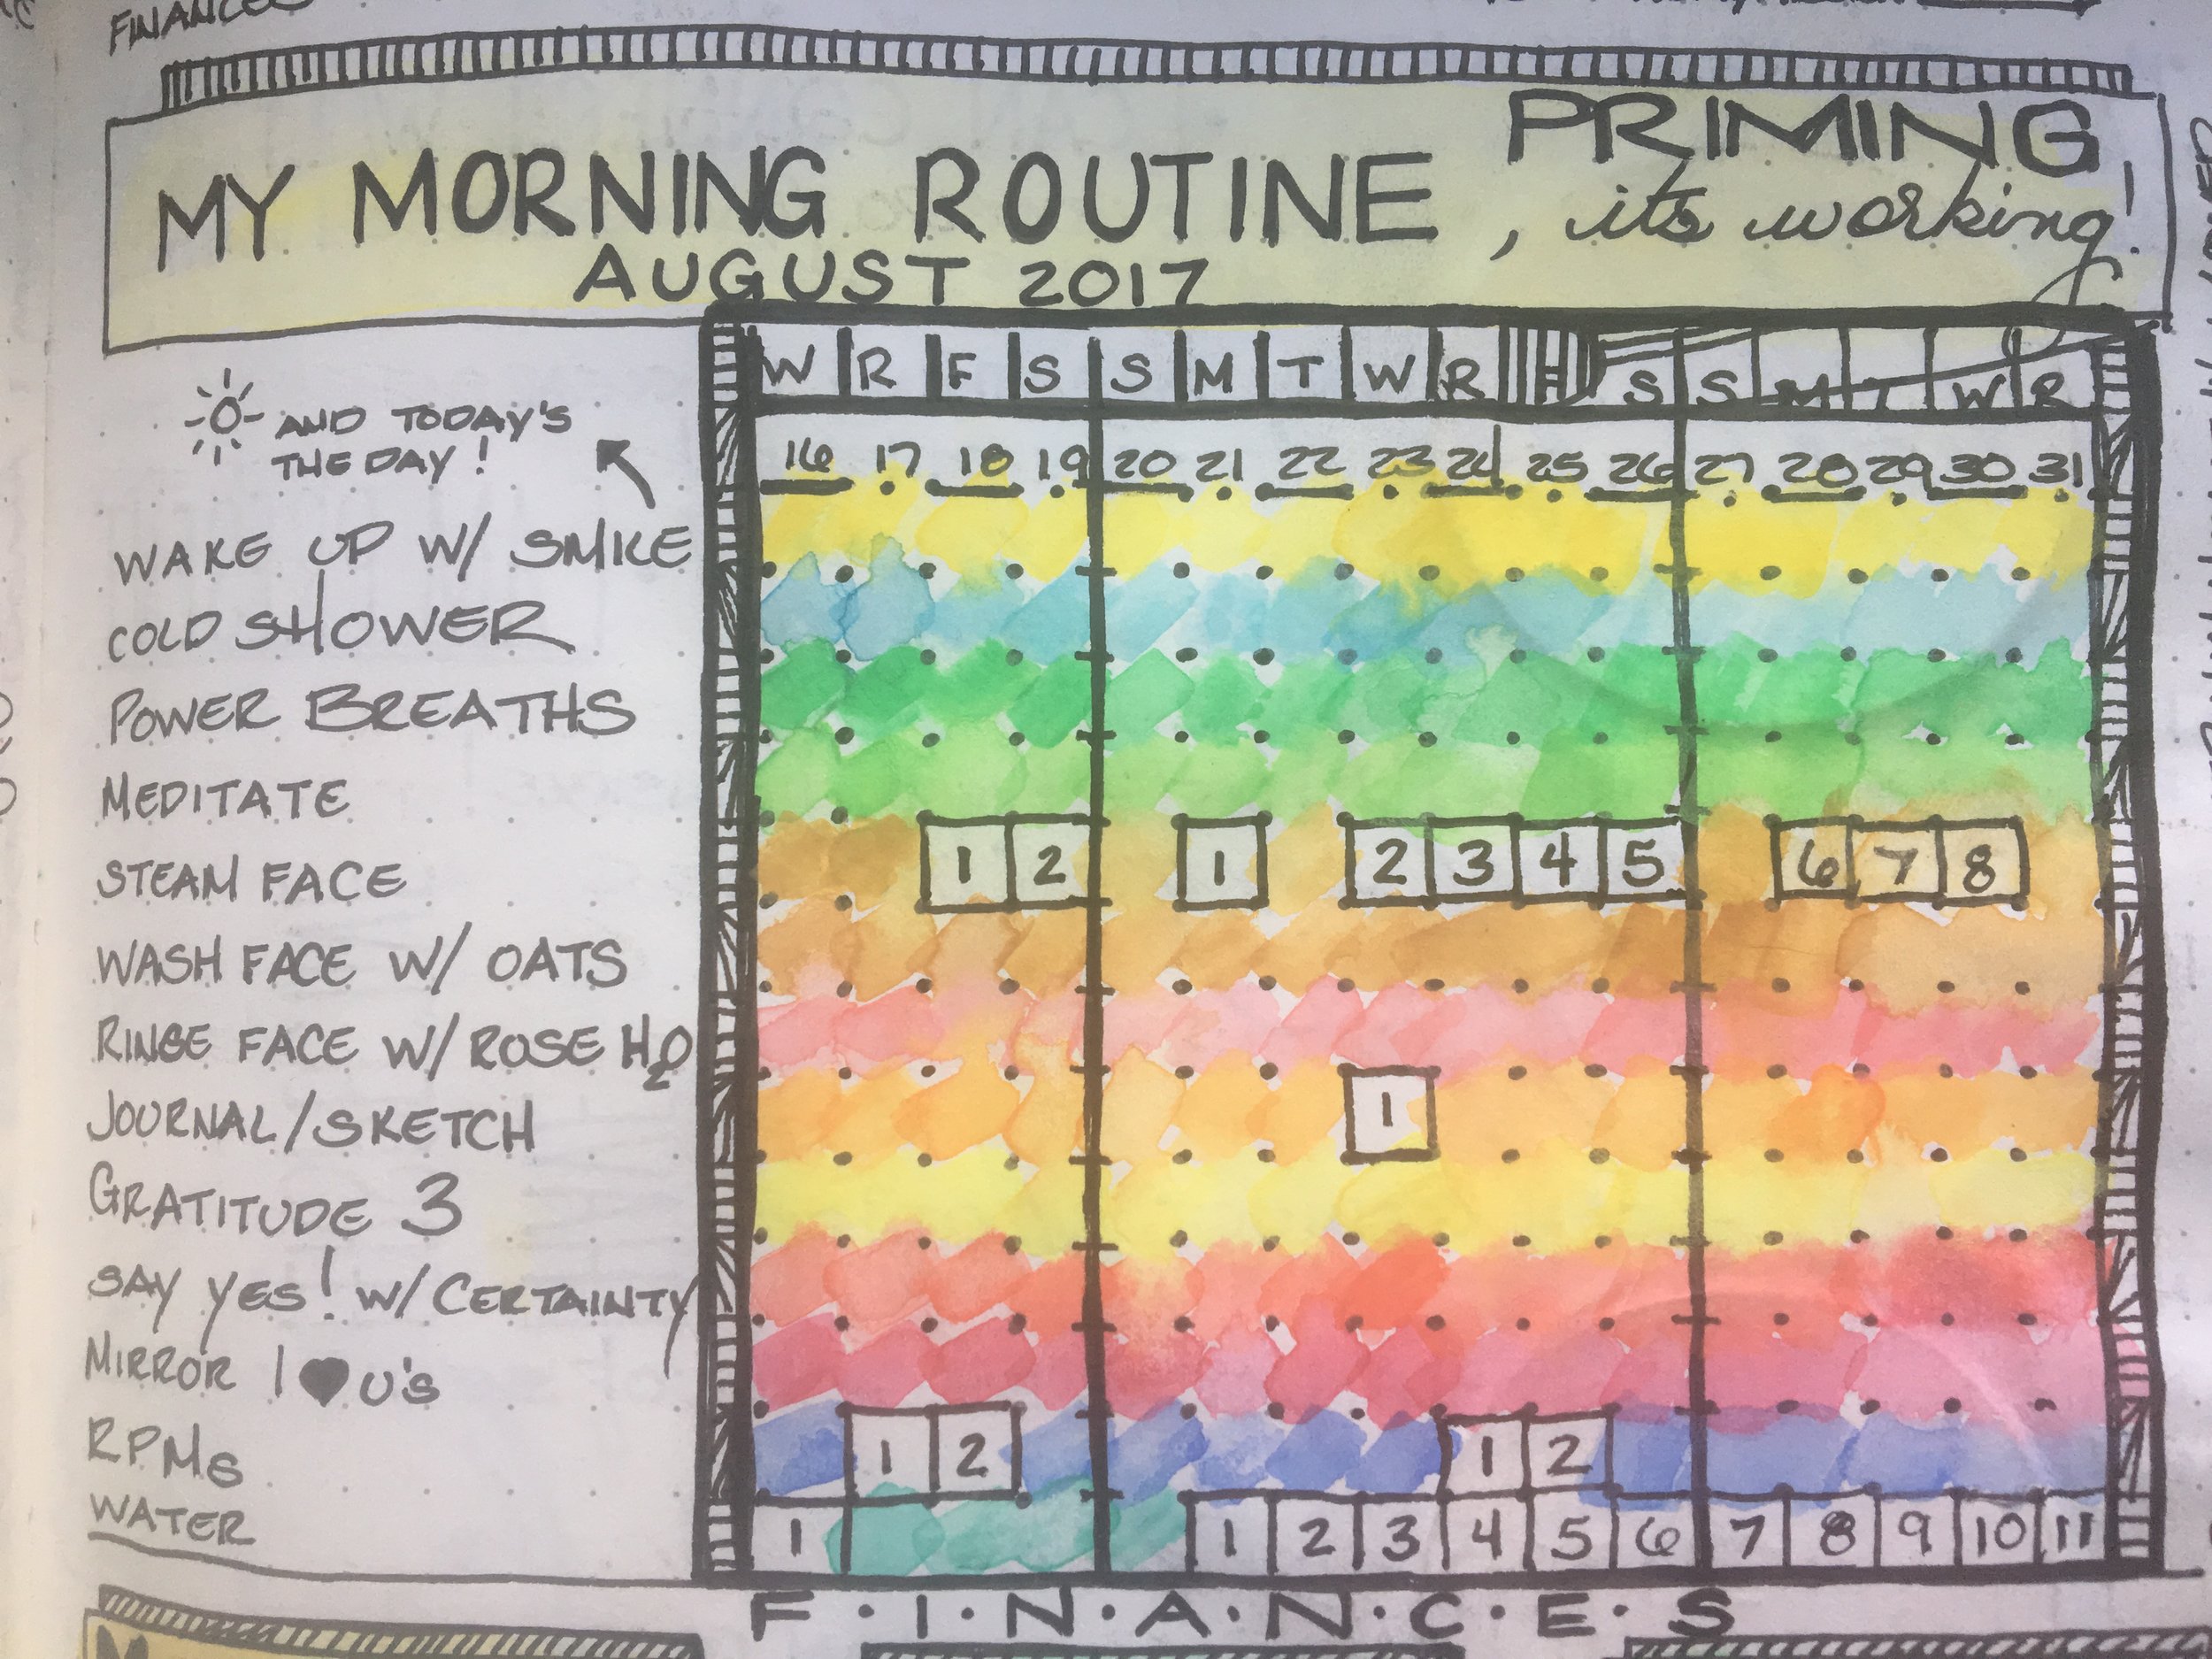 FINANCES
MY MORNING ROUTINE, PRIMING its working!
AUGUST 2017
W R F S S M T W R F S S M T W R
AND TODAY'S
THE DAY!
16 17 18 19 20 21 22 23 24 25 26 27 28 29 30 31
WAKE UP W/ SMILE
COLD SHOWER
POWER BREATHS
MEDITATE
STEAM FACE 1 2 1 2 3 4 5 6 7 8
WASH FACE W/ OATS
RINSE FACE W/ ROSE H2O
JOURNAL/SKETCH 1
GRATITUDE 3
SAY YES! W/ CERTAINTY
MIRROR I ♥ U'S
RPMs 1 2 1 2
WATER 1 1 2 3 4 5 6 7 8 9 10 11
F·I·N·A·N·C·E·S